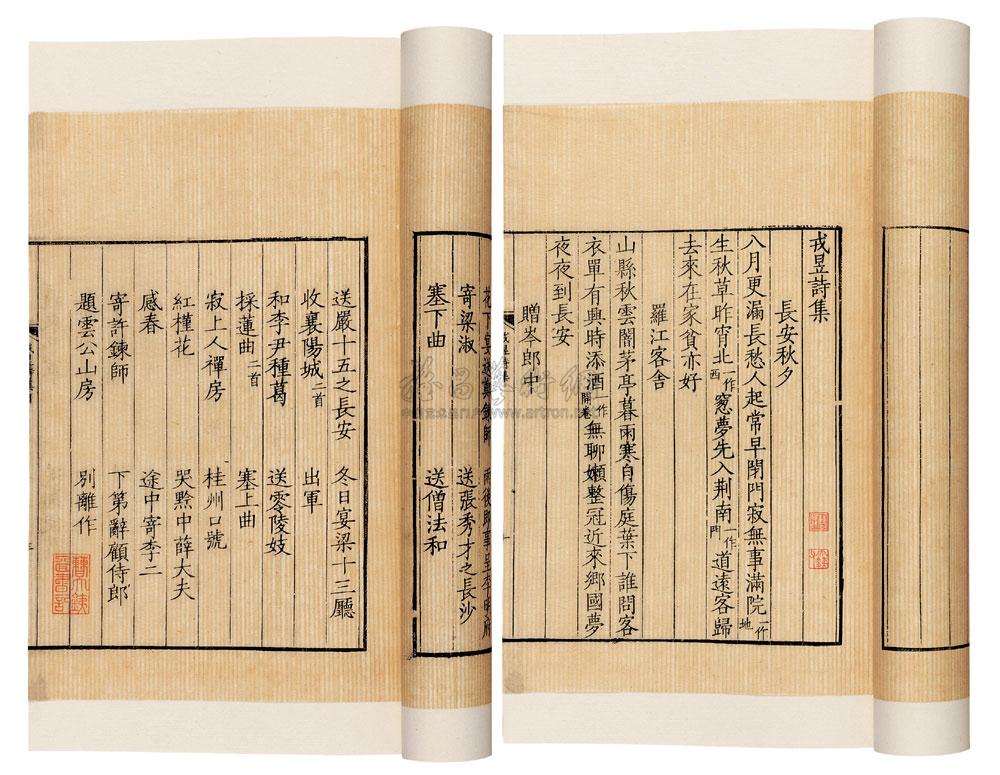 戎昱詩集
長安秋夕
八月更漏長愁人起常早閉門寂無事滿院一作地
生秋草昨宵北一作西窓夢先入荆南一作門道遠客歸
去來在家貧亦好
羅江客舍
山縣秋雲闇茅亭暮雨寒自傷庭葉下誰問客
衣單有興時添酒一作開卷無聊嬾整冠近來鄉國夢
夜夜到長安
贈岑郎中
寄梁淑 送張秀才之長沙
塞下曲 送僧法和
送嚴十五之長安 冬日宴梁十三廳
收襄陽城二首 出軍
和李尹種葛 送零陵妓
採蓮曲二首 塞上曲
寂上人禪房 桂州口號
紅槿花 哭黔中薛大夫
感春 途中寄李二
寄許鍊師 下第辭顧侍郎
題雲公山房 別離作
www.artron.net